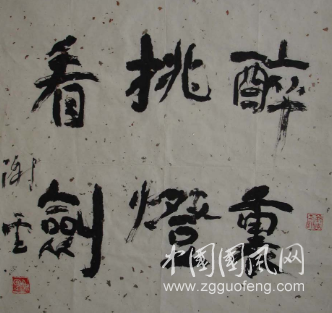 醉裏
挑燈
看劍
謝雲
中国国风网
www.zgguofeng.com